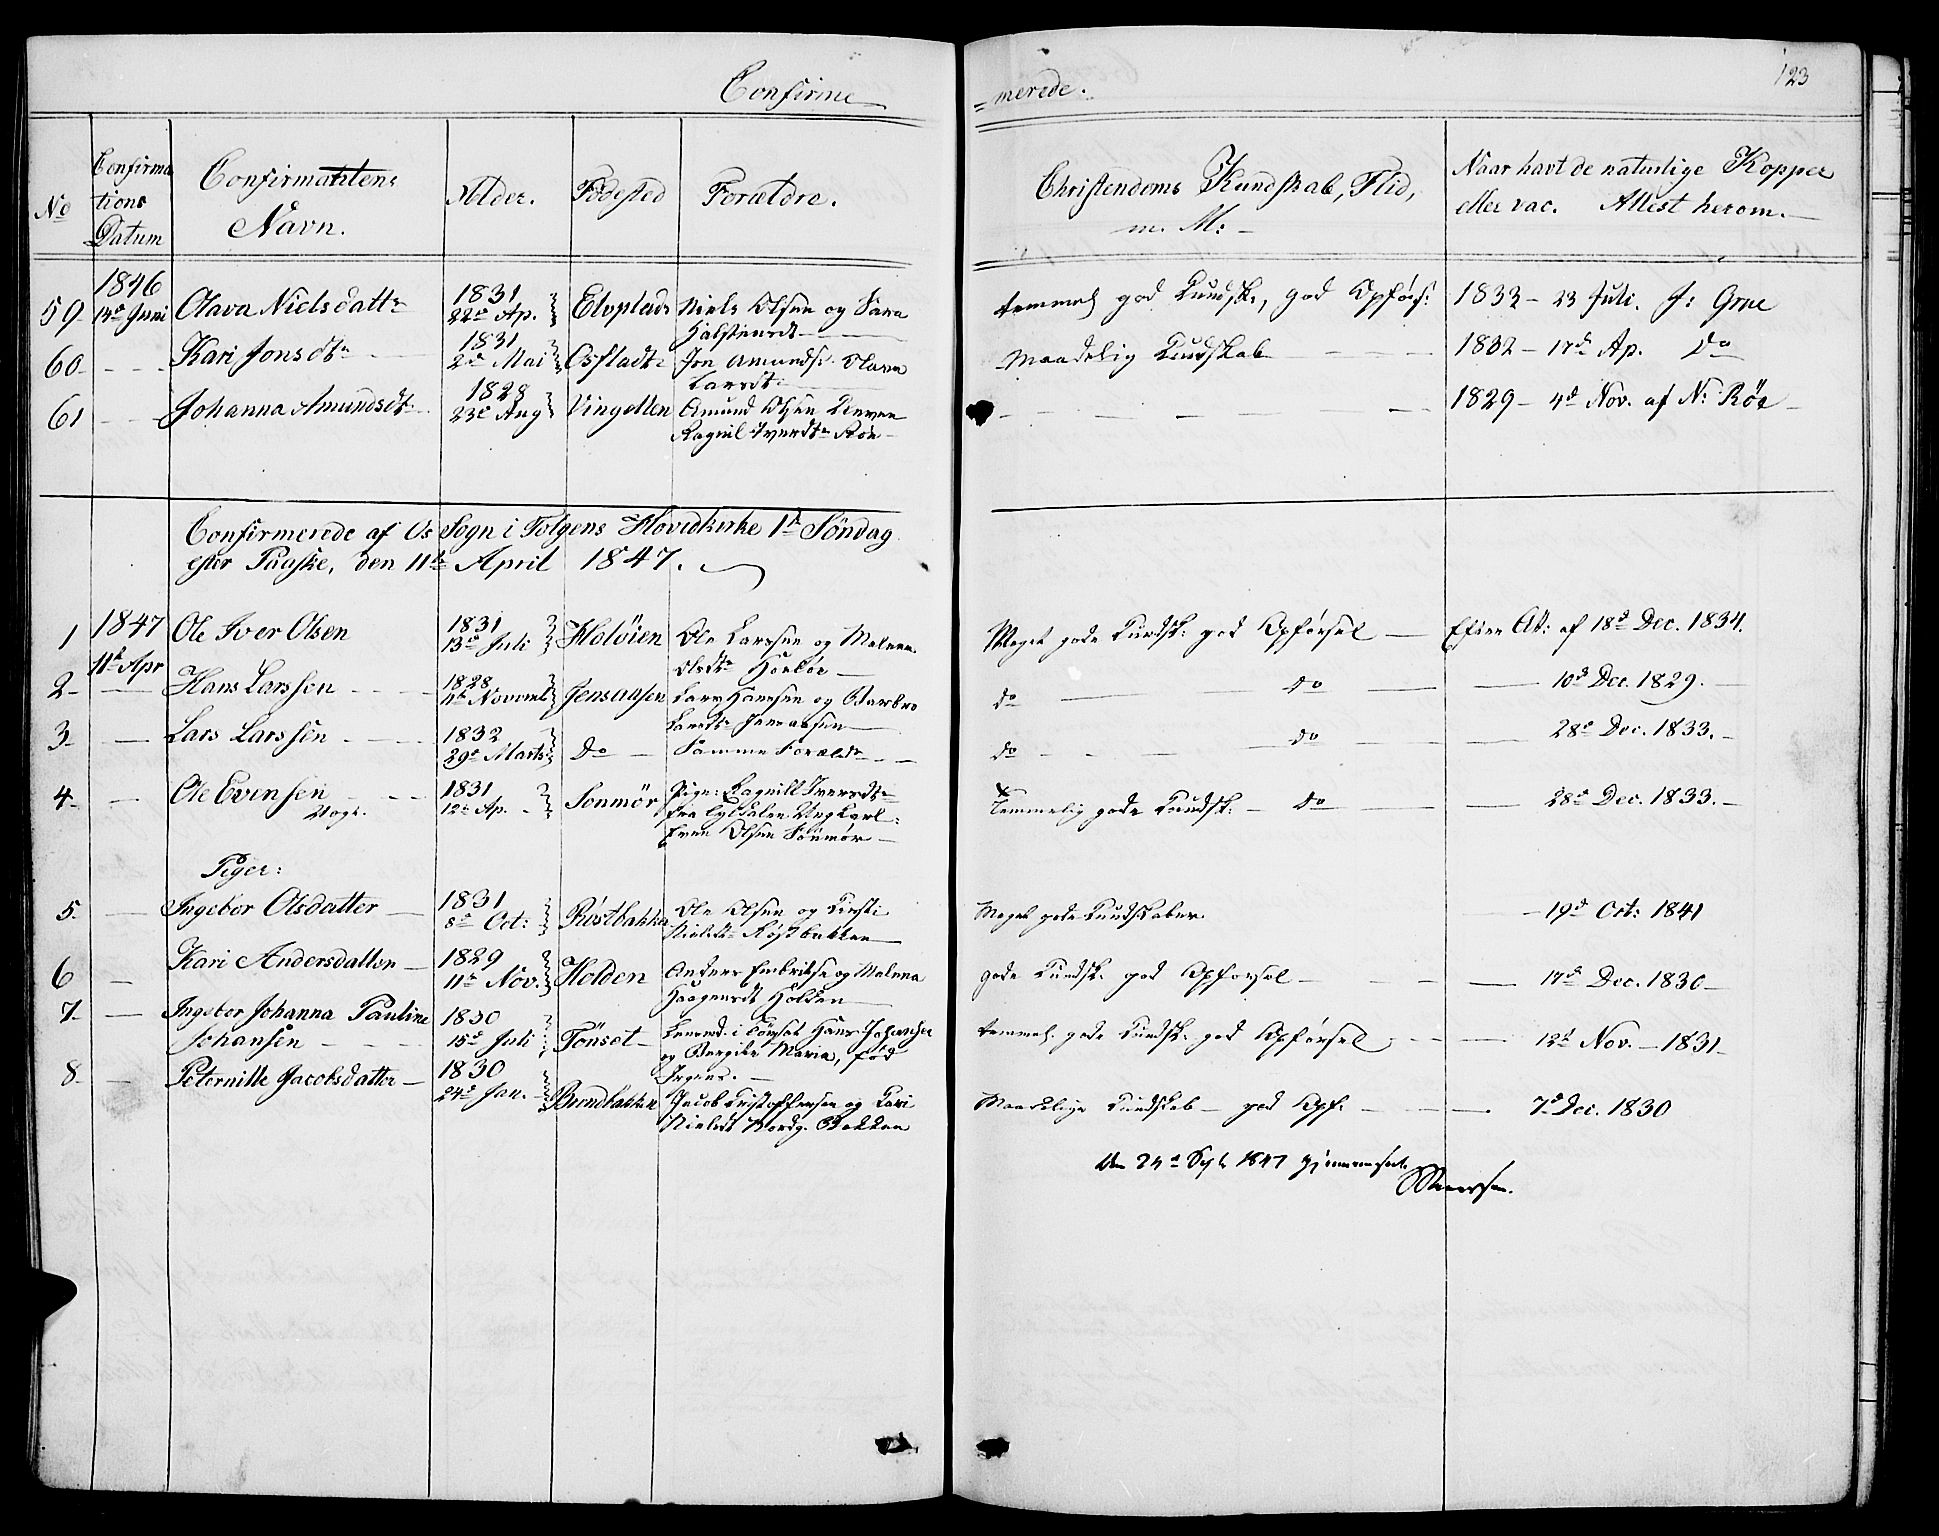 Confirme
=merede.
123
No
Confirma
tions
Datum
Confirmantens
Navn.
Alder.
Födested
Forældre.
Christendoms Kundskab, Flid,
m. M:
Naar havt de naturlige Kopper
eller vac. Attest herom.
59 1846 14de Juni Olava Nielsdattr 1831 22de Ap. Elvplads Niels Olsen og
Halstensdt
temmel god Kundsk:, god Opförs: 1833 - 23 Juli. J: Grue
60 Kari Jonsdtr 1831 2den Mai Jon Amunds. Olava
Larsdt
Maadelig Kundskab 1832 - 17d Ap. Do
61 Johanna Amundsdtr 1828 23de Aug Vingelen Amund Olsen
Ragnil Iversdtr Röe
1829 - 4d Nov. af N: Röe
Confirmerede af Os Sogn i Tolgens Hovedkirke 1te Söndag
efter Paaske, den 11te April 1847.
1 1847 11te Apr Ole Iver Olsen 1831 13de Juli Holöien Ole Larssen og Malene
Olsdtr
Meget gode Kundsk: god Opförsel Efter Att: af 18d Dec. 1834.
2 Hans Larssen 1828 Novemb Jensaasen Lars Hansen og Barbro
Larsdtr Jensaasen
do do 10d Dec. 1829.
3 Lars Larssen 1832 29de Marts Do Samme Forældr
do do 28de Dec. 1833.
4 Ole Evensen
Uægt.
1831 12te Ap. Sonmör Pige: Ragnild Iversdtr
fra Tyldalen Ungkarl
Even Olsen Sönmör
Temmelig gode Kundsk: do 28de Dec. 1833.
Piger:
5 Ingebor Olsdatter 1831 8de Oct: Röstbakka Ole Olsen og Kirsti
Nielsdtr Röstbakken
Meget gode Kundskaber 19d Oct: 1841
6 Kari Andersdatter 1829 11te Nov. Holden Anders Embretsen og Malena
Haagensdt Holden
gode Kundsk: god Opförsel 17d Dec. 1830
7 Ingebor Johanna Pauline
Johansen
1830 15de Juli Tönset Lensmd. i Tönset Hans Johansen
og Maria, född
Irgens.
temmel. gode Kundsk: god Opförsel 12t Nov. 1831
8 Peternille Jacobsdatter 1830 24de Jan. Bundbakken Jacob Kristoffersen og Kari
Nielsdt Bakken
Maadelige Kundskab god Opf: 7d Dec. 1830
Den 24de Sept 1847 gjennemseet.